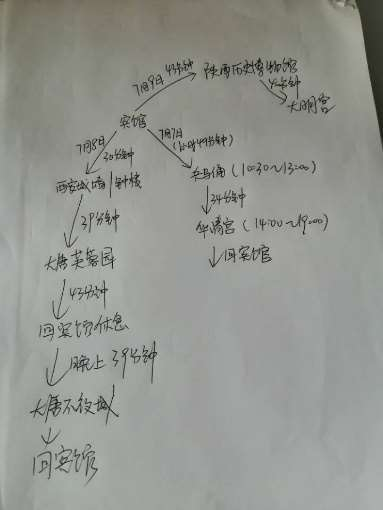 7月9日 43分钟
陕西历史博物馆
40分钟
大明宫
宾馆
7月8日
30分钟
西安城墙/钟楼
39分钟
大唐芙蓉园
43分钟
回宾馆休息
晚上 39分钟
大唐不夜城
回宾馆
7月7日
(1小时49分钟)
兵马俑 (10:30~13:00)
34分钟
华清宫 (14:00~19:00)
回宾馆